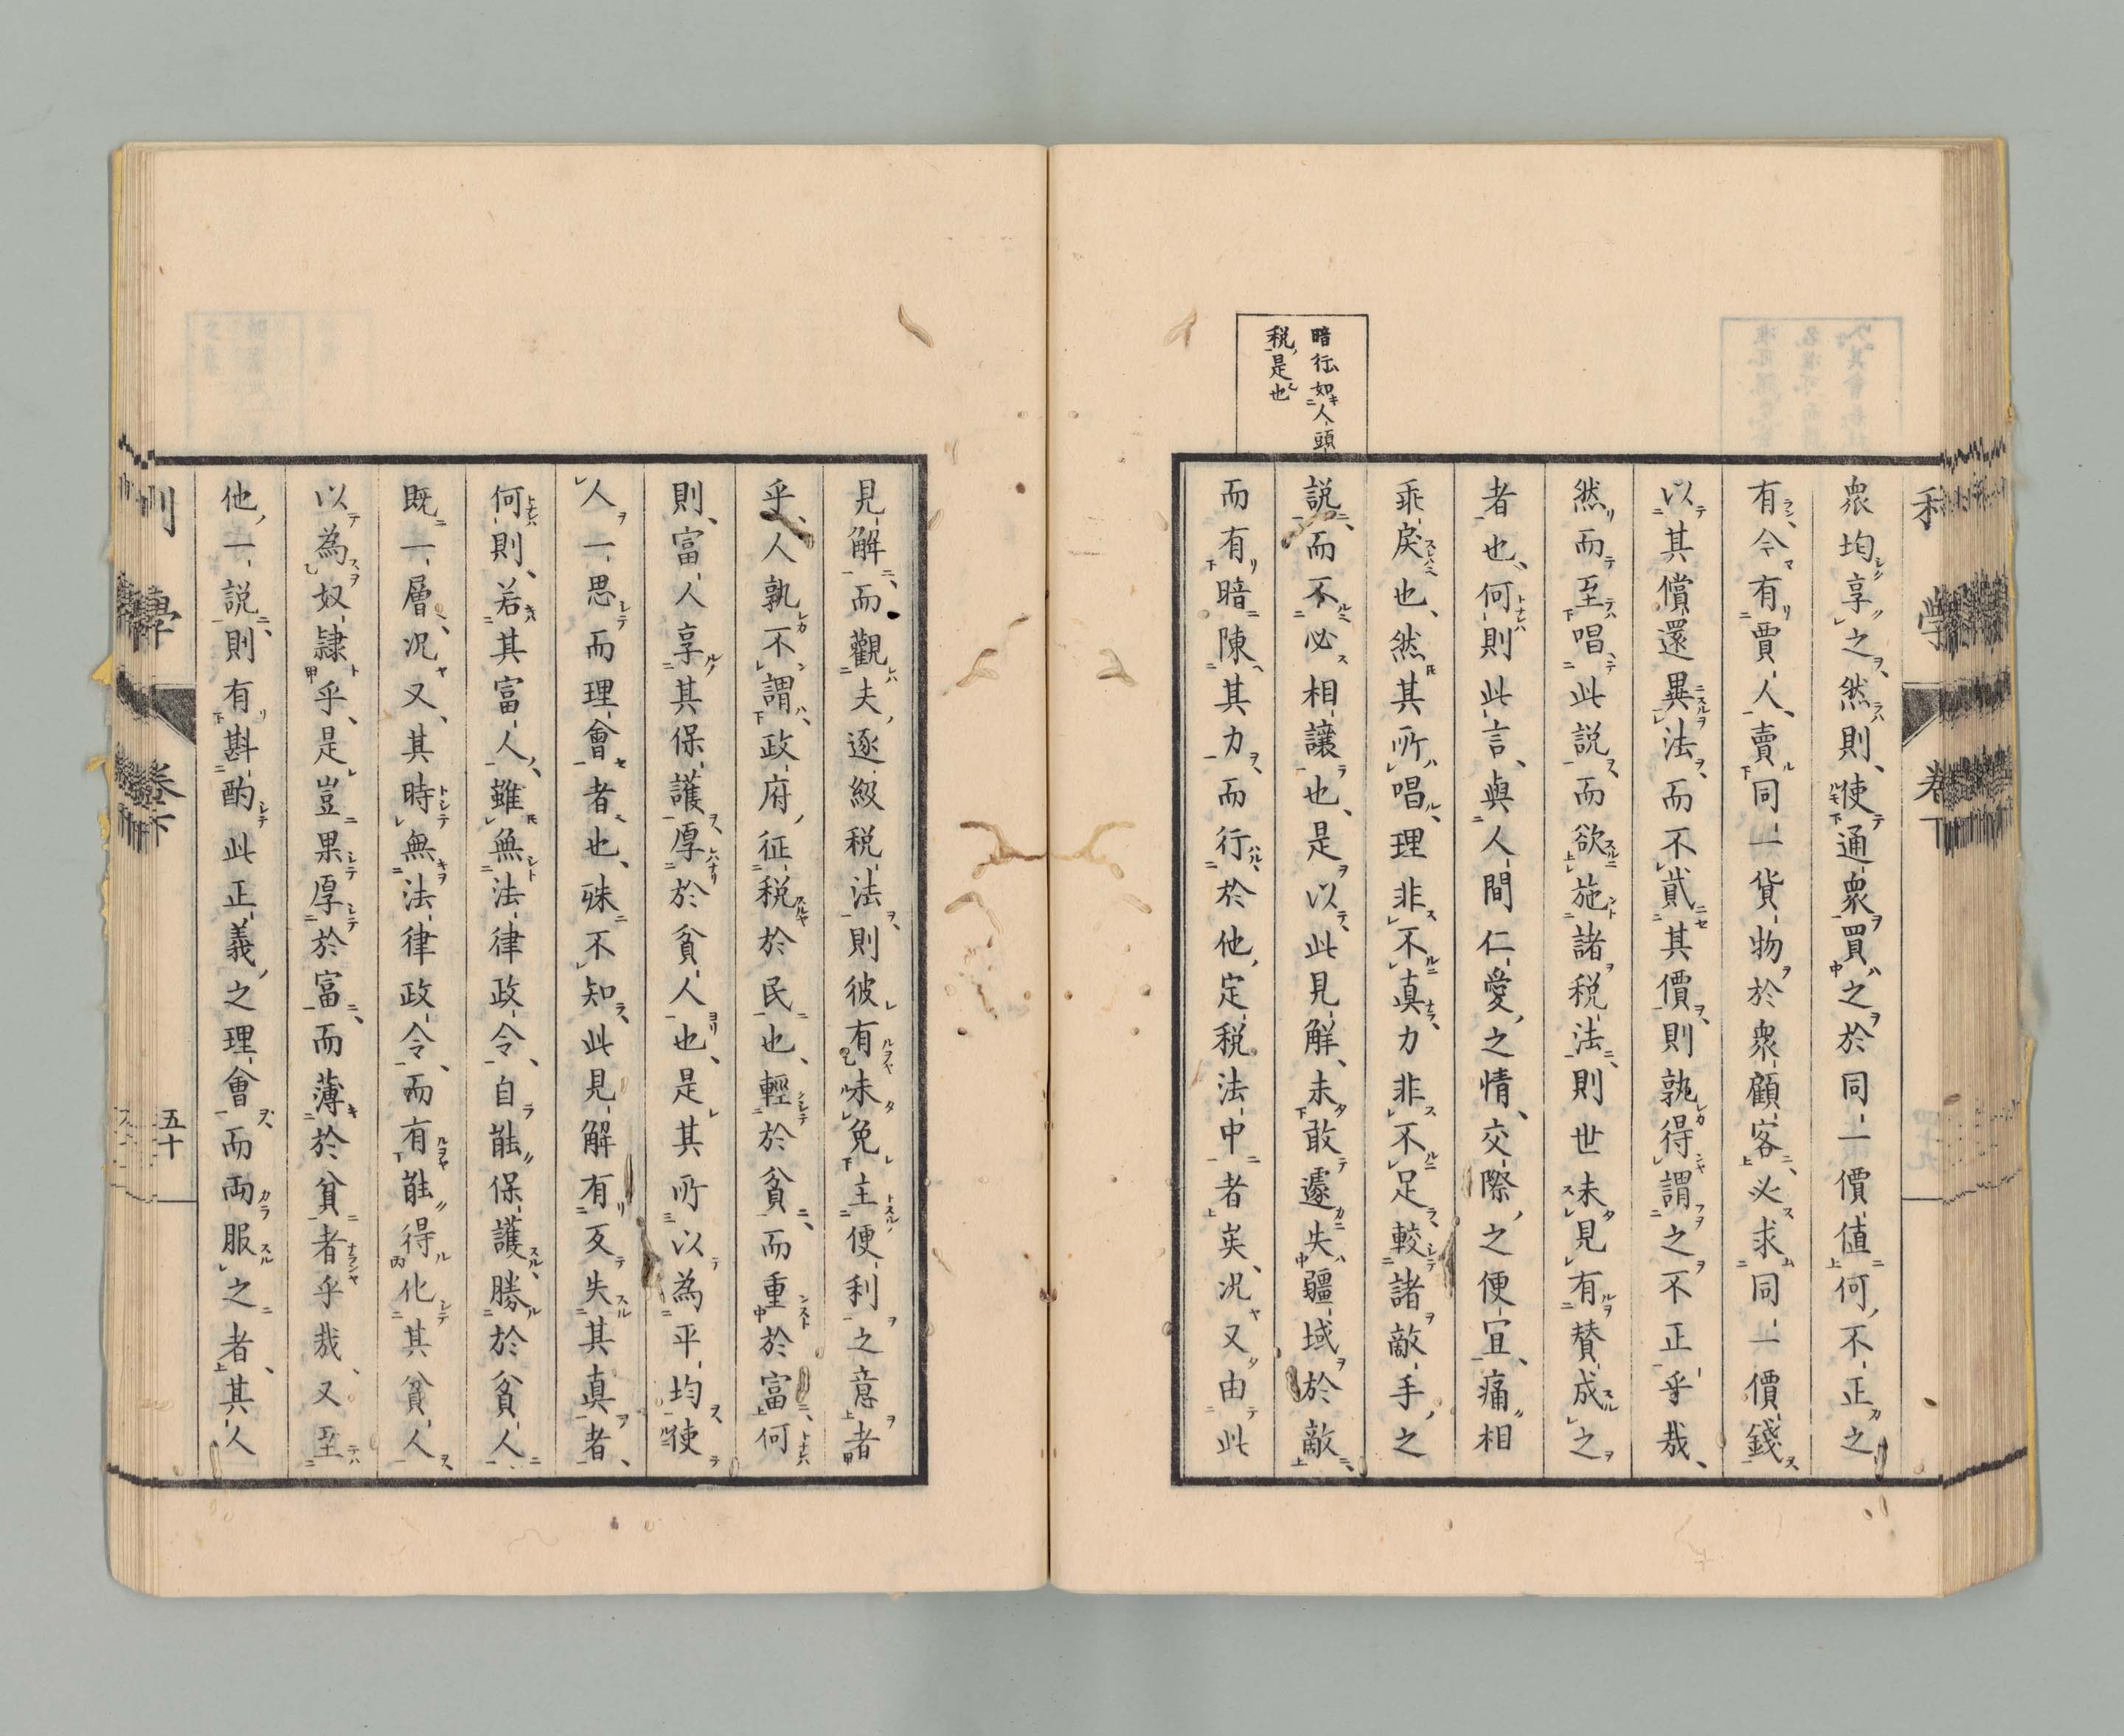 暗行如人頭
税是也
衆均享之然則使通衆買之於同一價値何不正之
有令有賈人賣同一貨物於衆顧客必求同一價錢
以其償還異法而不貳其價則孰得謂之不正乎哉
然而至唱此説而欲施諸税法則世未見有賛成之
者也何則此言與人間仁愛之情交際之便宜痛相
乖戻也然其所唱理非不真力非不足較諸敵手之
説而不必相讓也是以此見解未敢遽失疆域於敵
而有暗陳其力而行於他定税法中者矣况又由此
見解而觀夫逐級税法則彼有味免主便利之意者
乎人孰不謂政府征税於民也輕於貧而重於富何
則富人享其保護厚於貧人也是其所以為平均使
人一思而理會者也殊不知此見解有反失其真者
何則若其富人雖無法律政令自能保護勝於貧人
既一層况又其時無法律政令而有能得化其貧人
以為奴隷乎是豈果厚於富而薄於貧者乎哉又至
他一説則有斟酌此正義之理會而両服之者其人
利學
卷下
五十